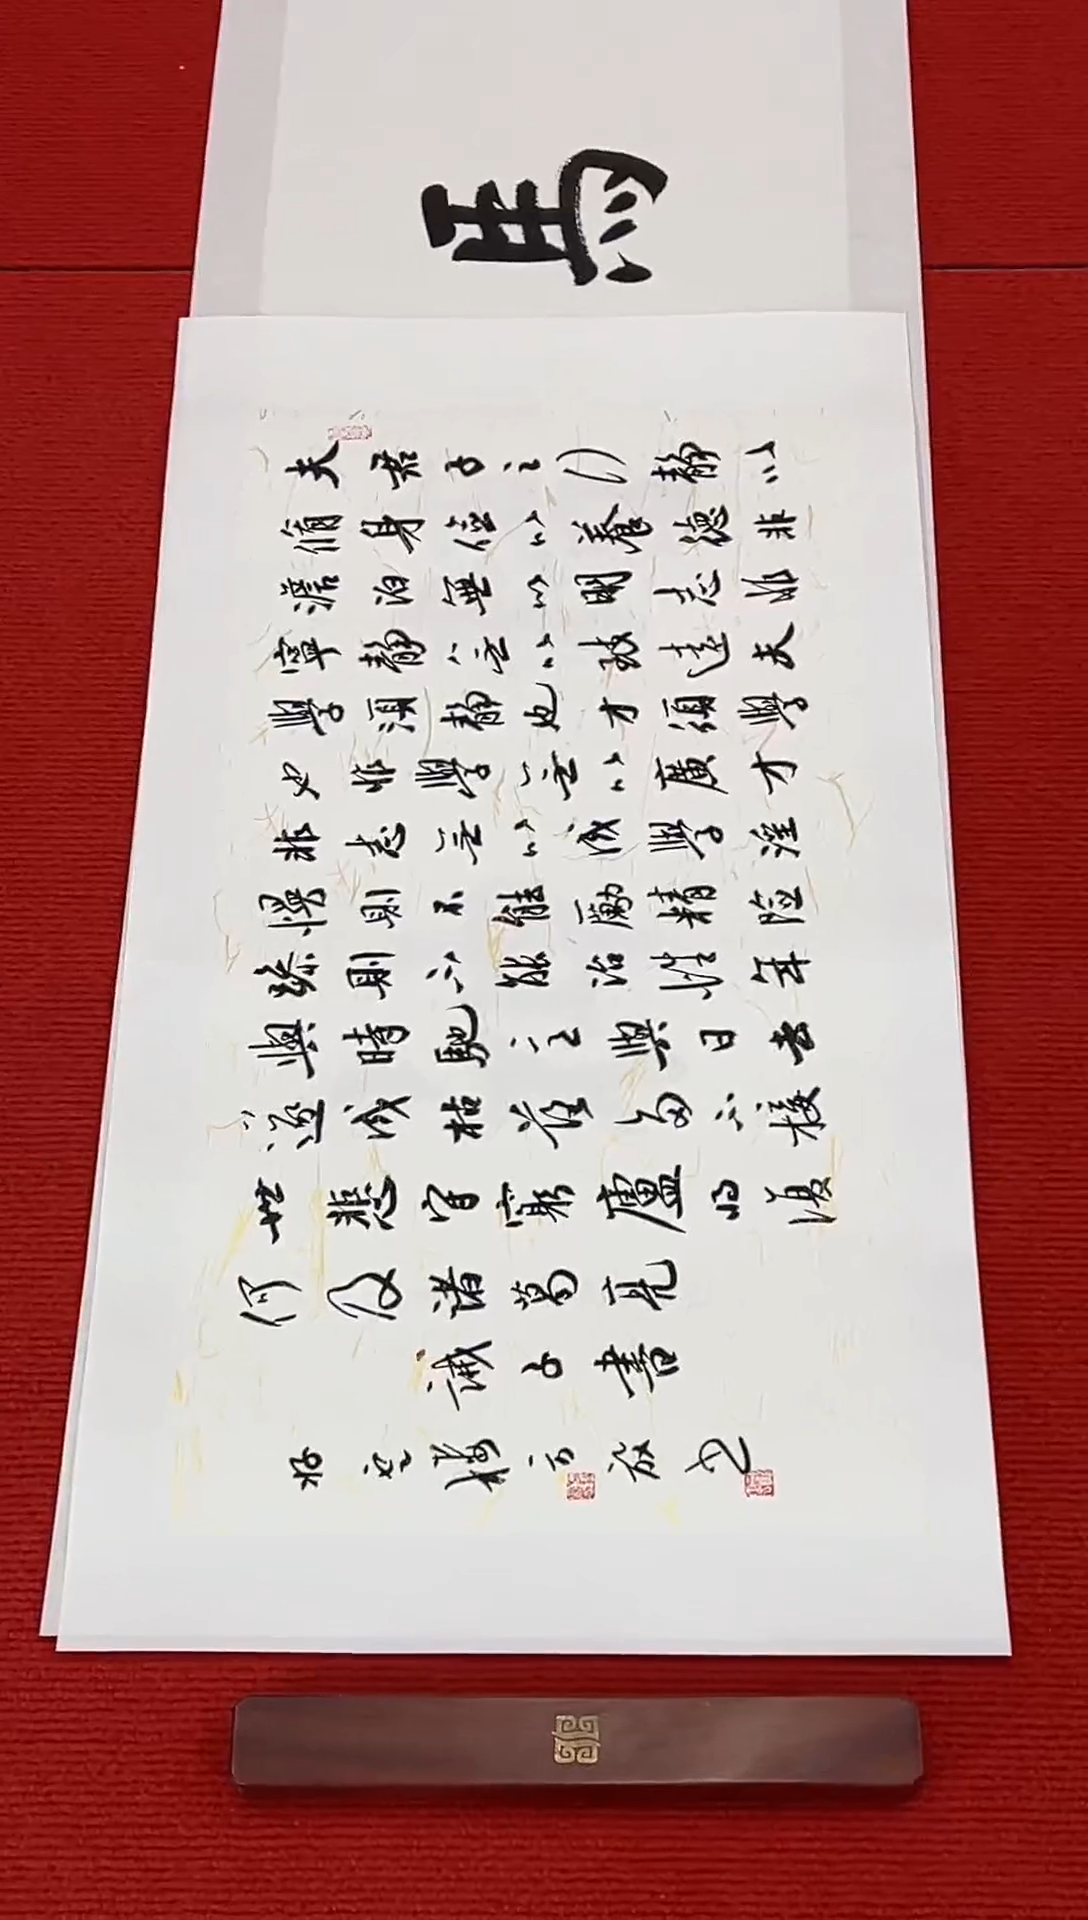 馬
夫君子之行靜以
脩身儉以養德非
澹泊無以明志非
寧靜無以致遠夫
學須靜也才須學
也非學無以廣才
非志無以成學淫
慢則不能勵精險
躁則不能治性年
與時馳意與日去
遂成枯落多不接
世悲守窮廬將復
何及諸葛亮
誡子書